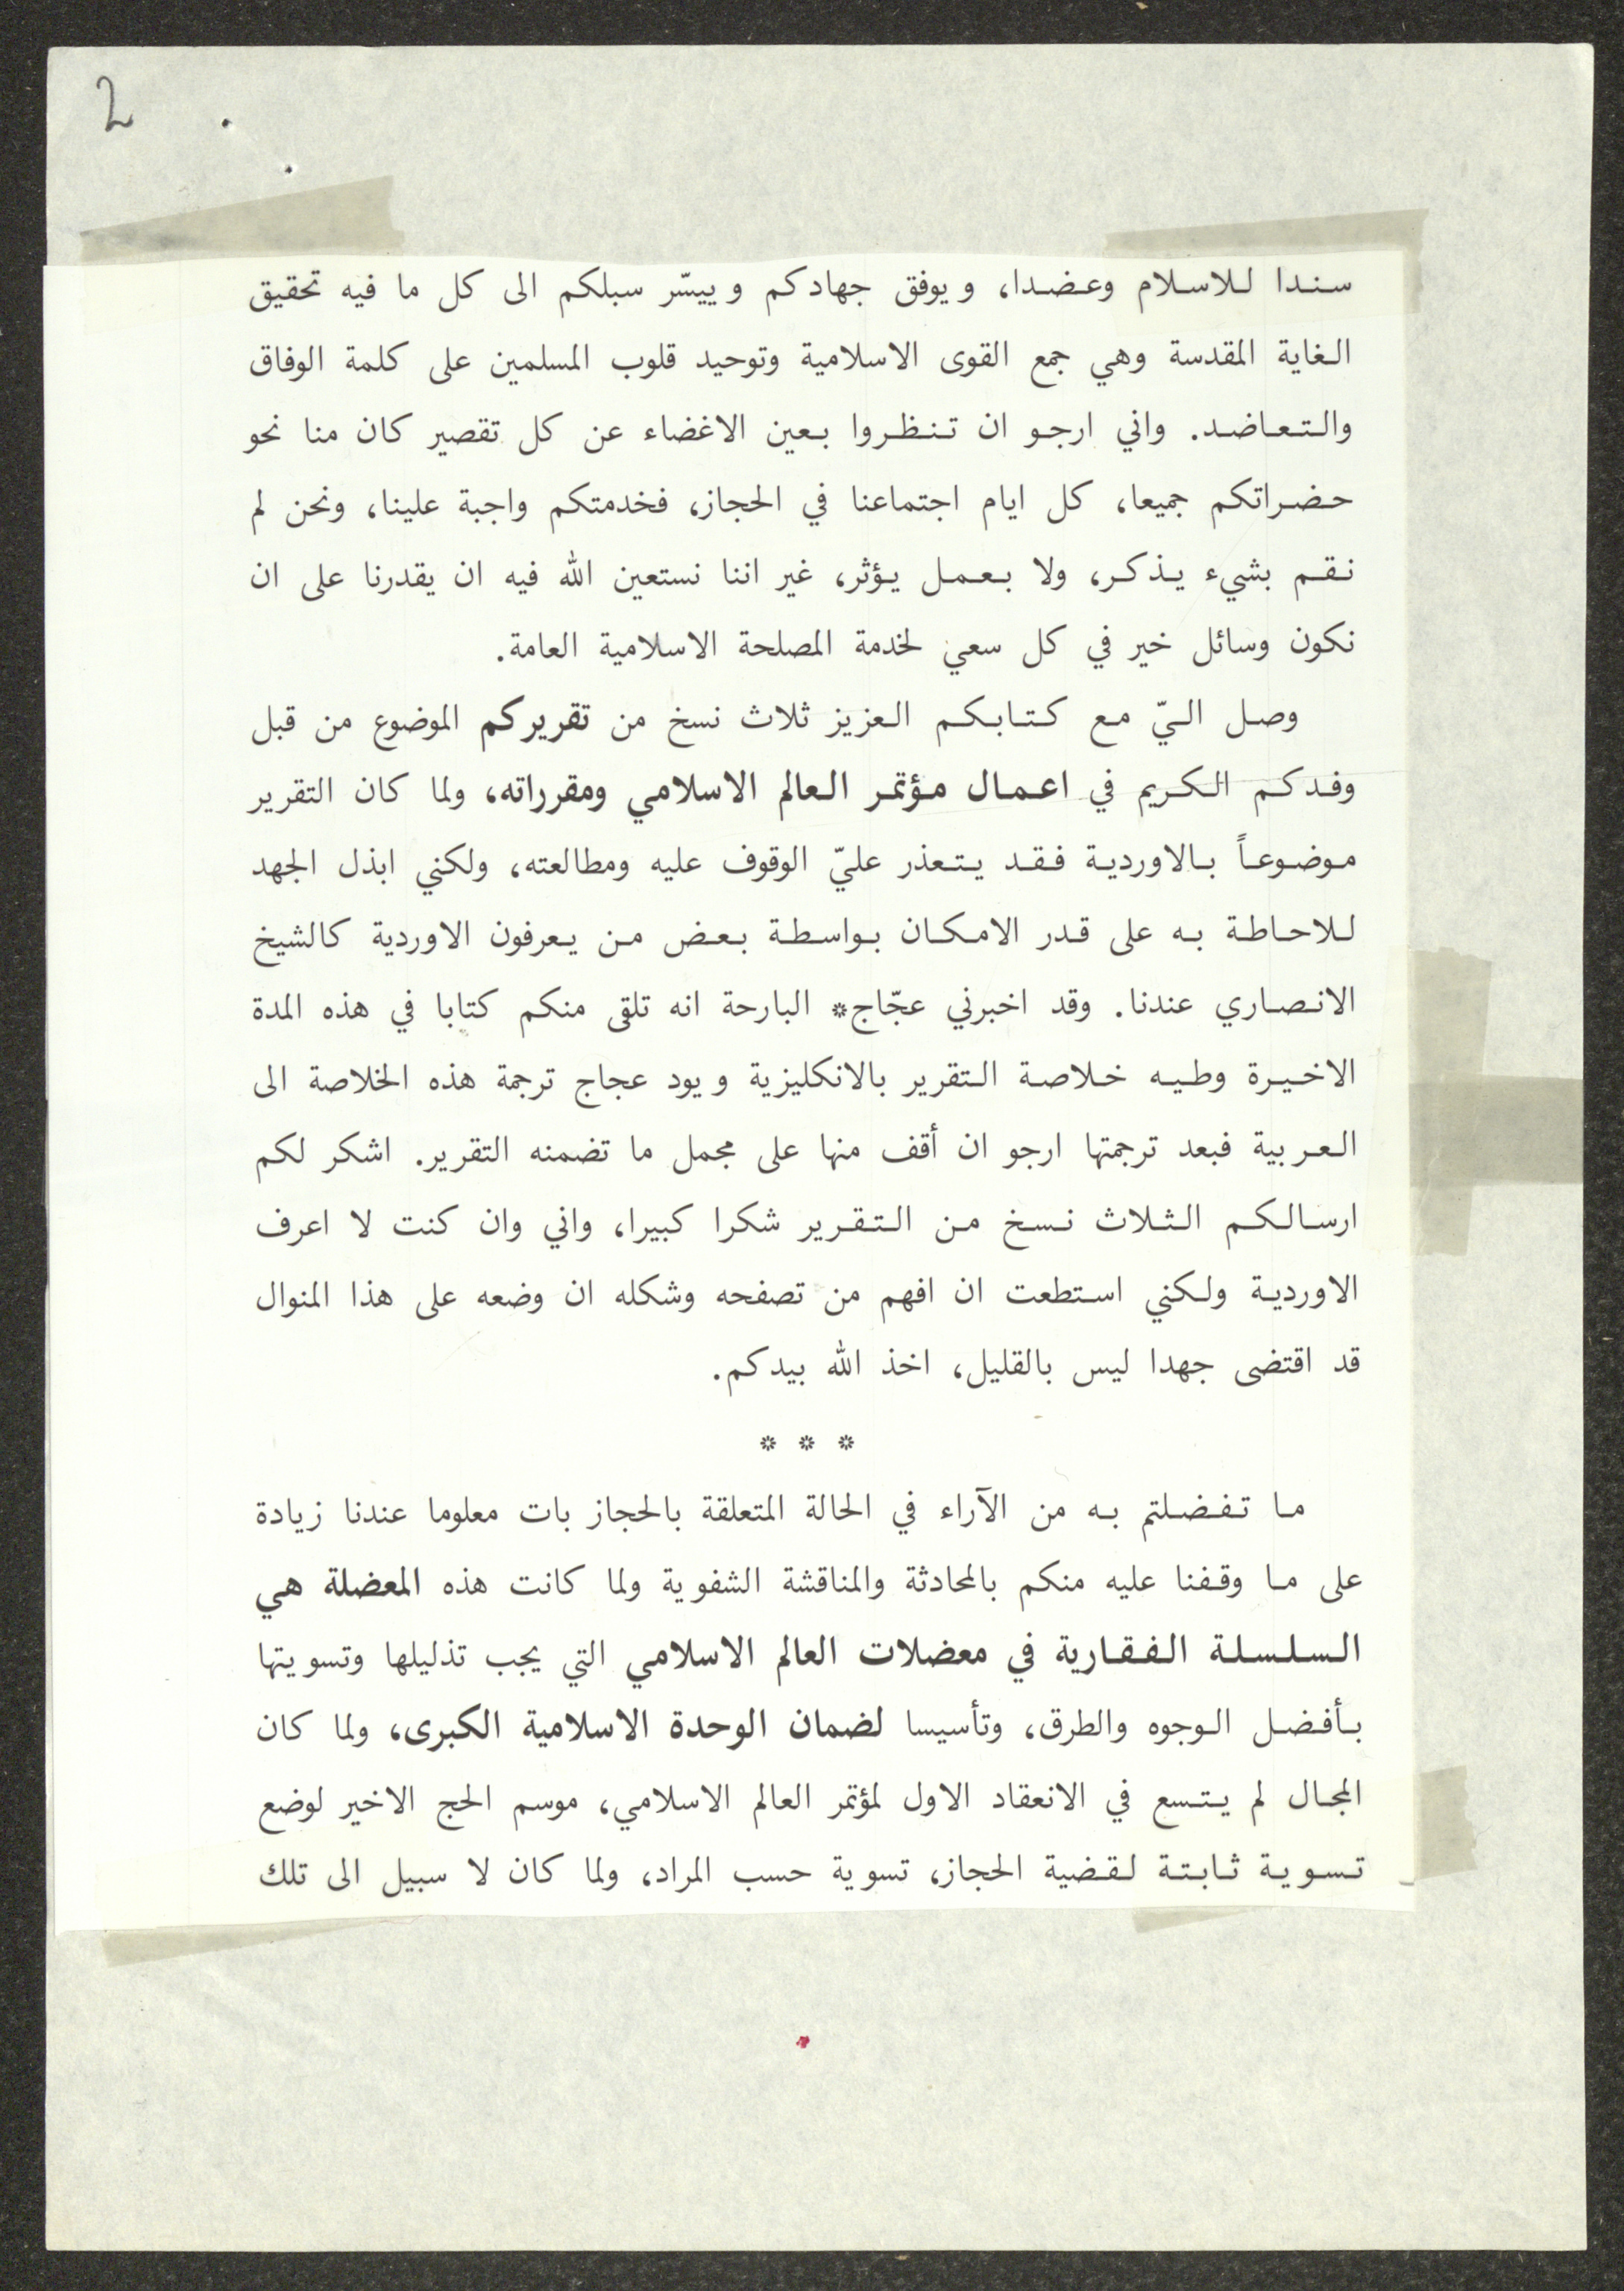 2
سندا للاسلام وعضدا، ويوفق جهادكم وييسّر سبلكم الى كل ما فيه تحقيق
الغاية المقدسة وهي جمع القوى الاسلامية وتوحيد قلوب المسلمين على كلمة الوفاق
والتعاضد. واني ارجو ان تنظروا بعين الاغضاء عن كل تقصير كان منا نحو
حضراتكم جميعا، كل ايام اجتماعنا في الحجاز، فخدمتكم واجبة علينا، ونحن لم
نقم بشيء يذكر، ولا بعمل يؤثر، غير اننا نستعين الله فيه ان يقدرنا على ان
نكون وسائل خير في كل سعي لخدمة المصلحة الاسلامية العامة.
وصل اليّ مع كتابكم العزيز ثلاث نسخ من تقريركم الموضوع من قبل
وفدكم الكريم في اعمال مؤتمر العالم الاسلامي ومقرراته، ولما كان التقرير
موضوعاً بالاوردية فقد يتعذر عليّ الوقوف عليه ومطالعته، ولكني ابذل الجهد
للاحاطة به على قدر الامكان بواسطة بعض من يعرفون الاوردية كالشيخ
الانصاري عندنا. وقد اخبرني عجّاج* البارحة انه تلقى منكم كتابا في هذه المدة
الاخيرة وطيه خلاصة التقرير بالانكليزية ويود عجاج ترجمة هذه الخلاصة الى
العربية فبعد ترجمتها ارجو ان أقف منها على مجمل ما تضمنه التقرير. اشكر لكم
ارسالكم الثلاث نسخ من التقرير شكرا كبيرا، واني وان كنت لا اعرف
الاوردية ولكني استطعت ان افهم من تصفحه وشكله ان وضعه على هذا المنوال
قد اقتضى جهدا ليس بالقليل، اخذ الله بيدكم.
* * *
ما تفضلتم به من الآراء في الحالة المتعلقة بالحجاز بات معلوما عندنا زيادة
على ما وقفنا عليه منكم بالمحادثة والمناقشة الشفوية ولما كانت هذه المعضلة هي
السلسلة الفقارية في معضلات العالم الاسلامي التي يجب تذليلها وتسويتها
بأفضل الوجوه والطرق، وتأسيسا لضمان الوحدة الاسلامية الكبرى، ولما كان
المجال لم يتسع في الانعقاد الاول لمؤتمر العالم الاسلامي، موسم الحج الاخير لوضع
تسوية ثابتة لقضية الحجاز، تسوية حسب المراد، ولما كان لا سبيل الى تلك